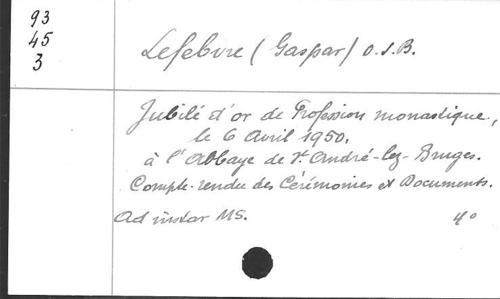 93
45
3
Lefebvre (Gaspar) O.S.B.
Jubilé d'or de Profession monastique,
le 6 Avril 1950,
à l'Abbaye de St André-lez-Bruges.
Compte-rendu des Cérémonies et Documents.
Ad instar MS. 4°